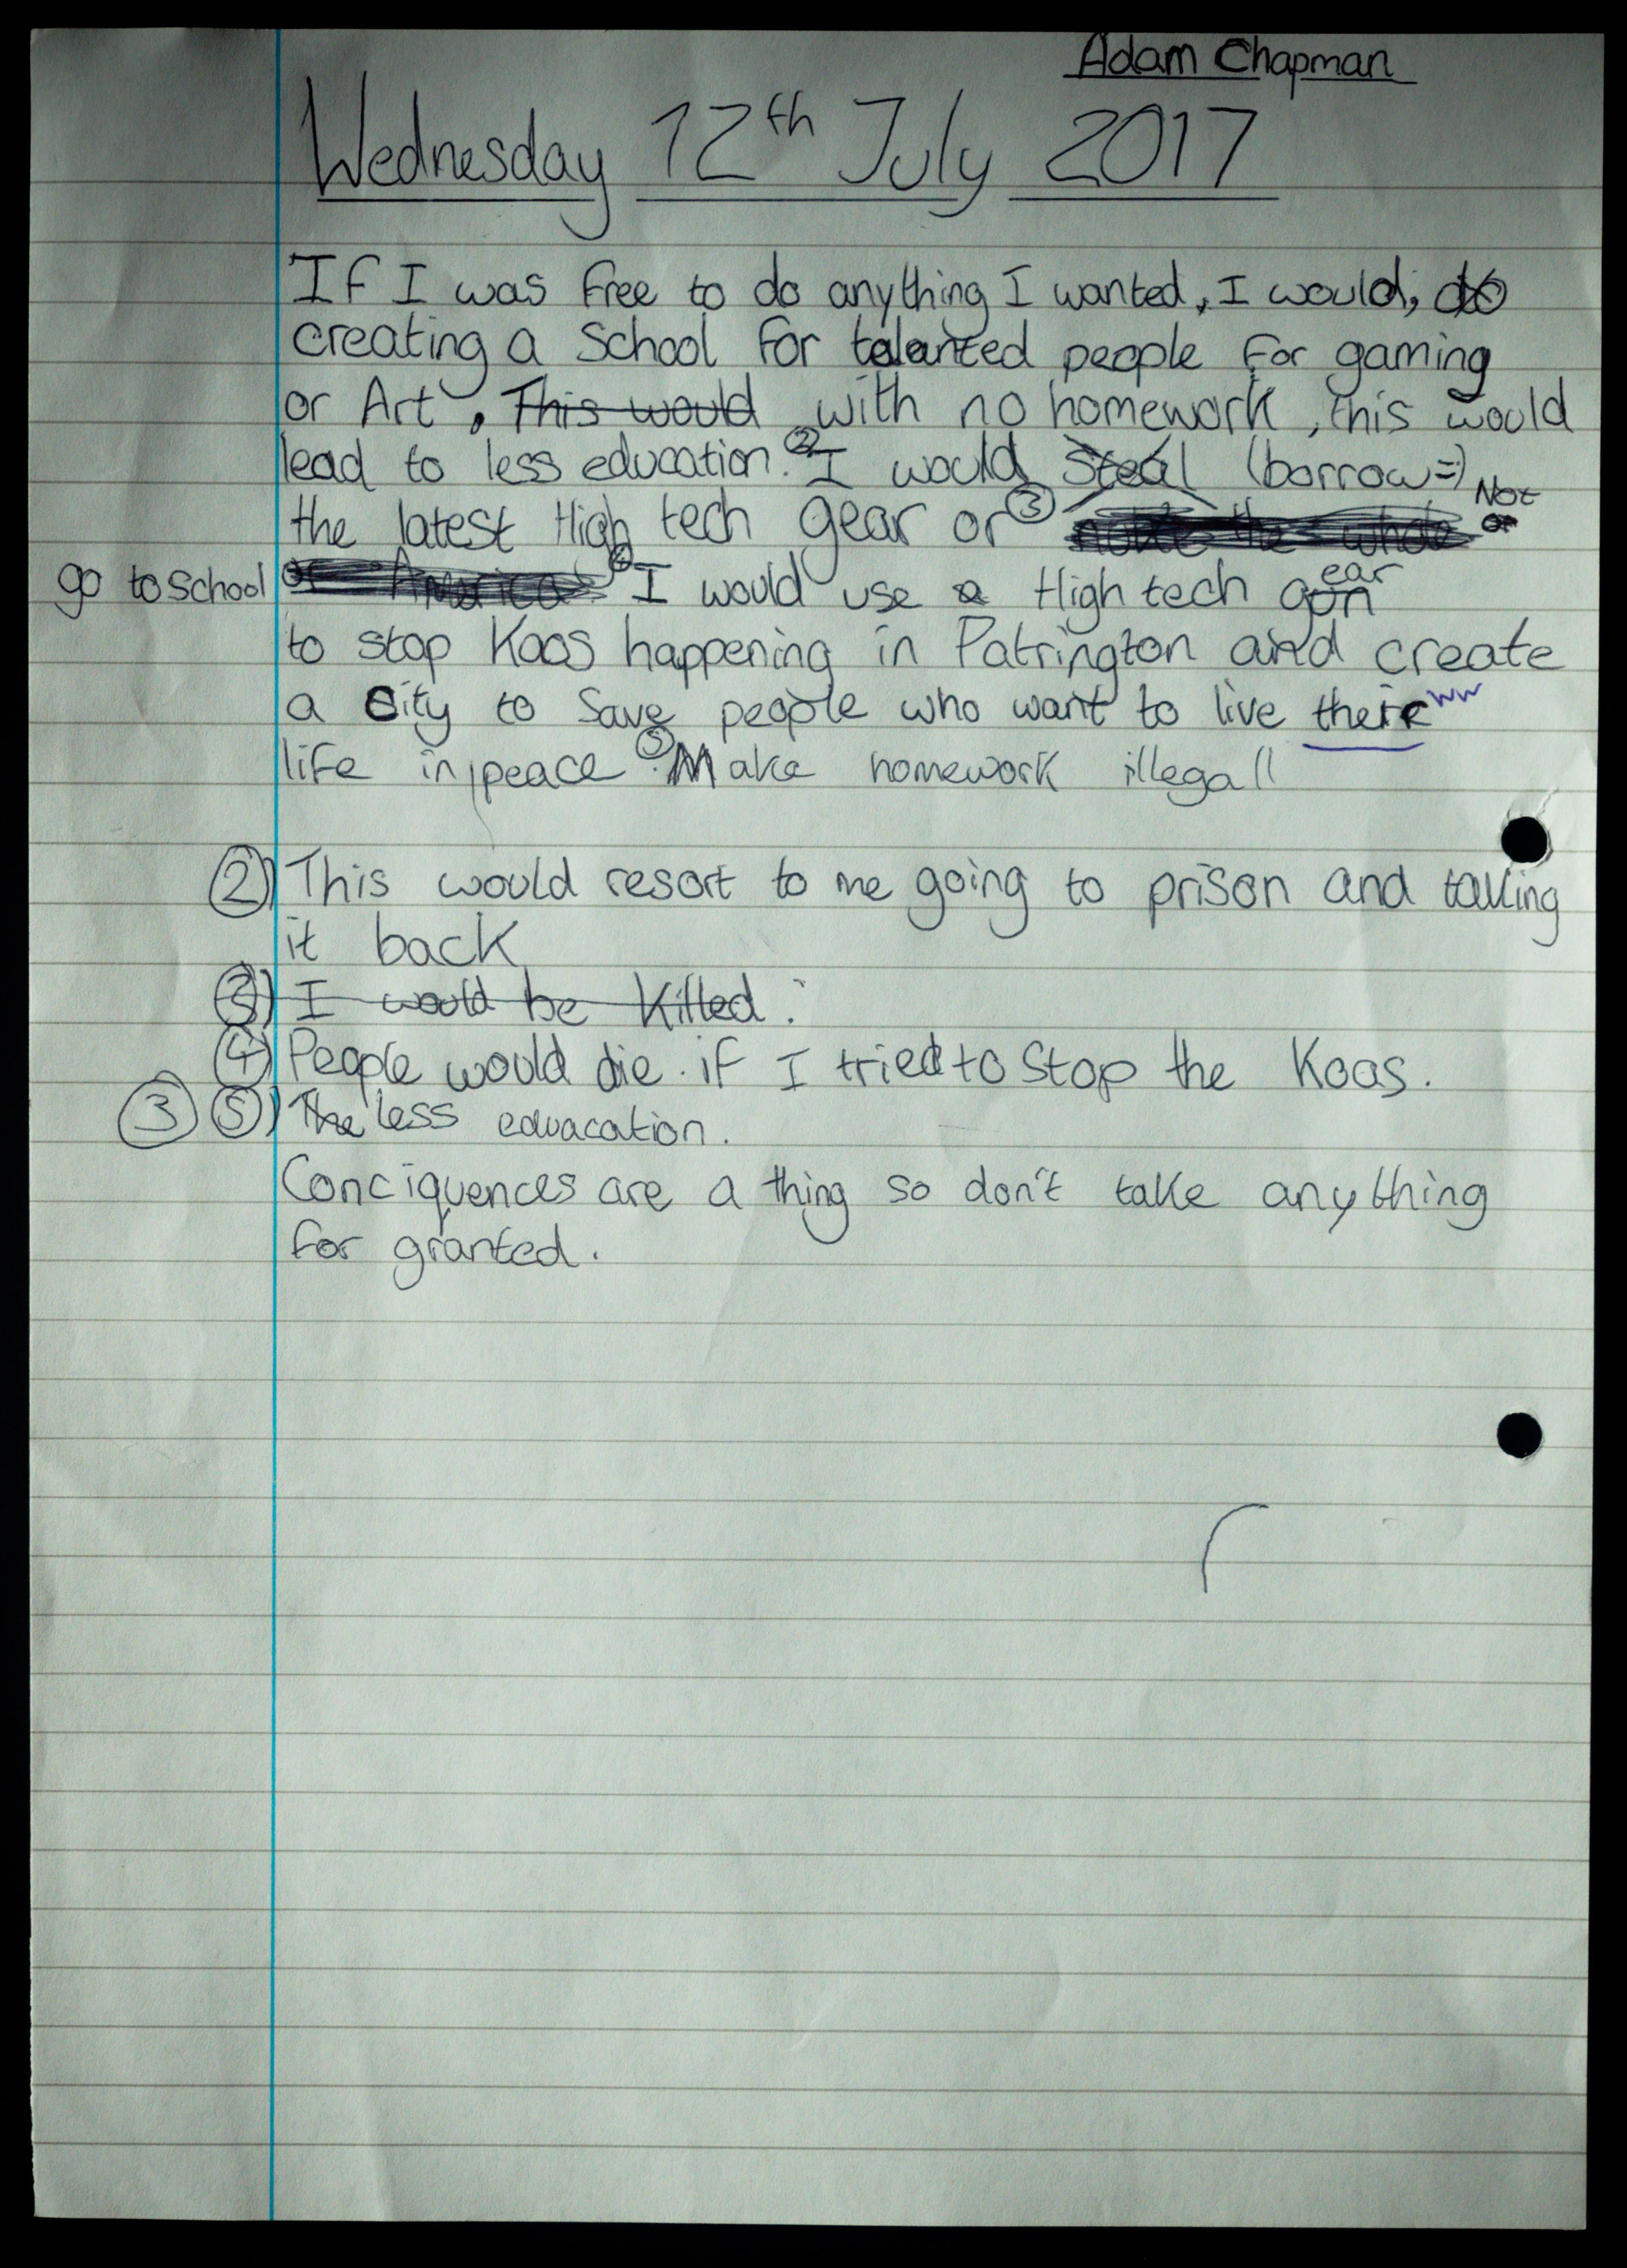 Adam Chapman
Wednesday 12th July 2017
If I was free to do anything I wanted, I would, do
creating a school for talanted people for gaming
or Art, This would with no homework, this would
lead to less education. ② I would Steal (borrow =)
the latest High tech gear or ③ the whole Not or
go to school America ④ I would use a High tech gear
to stop Kaos happening in Patrington and create
a City to save people who want to live there ww
life in peace. ⑤ Make homework illegal!
② This would resort to me going to prison and taking
it back
③ I would be Killed.
④ People would die. if I tried to stop the Kaos.
③ ⑤ The less eduacation.
Conciquences are a thing so don't take anything
for granted.